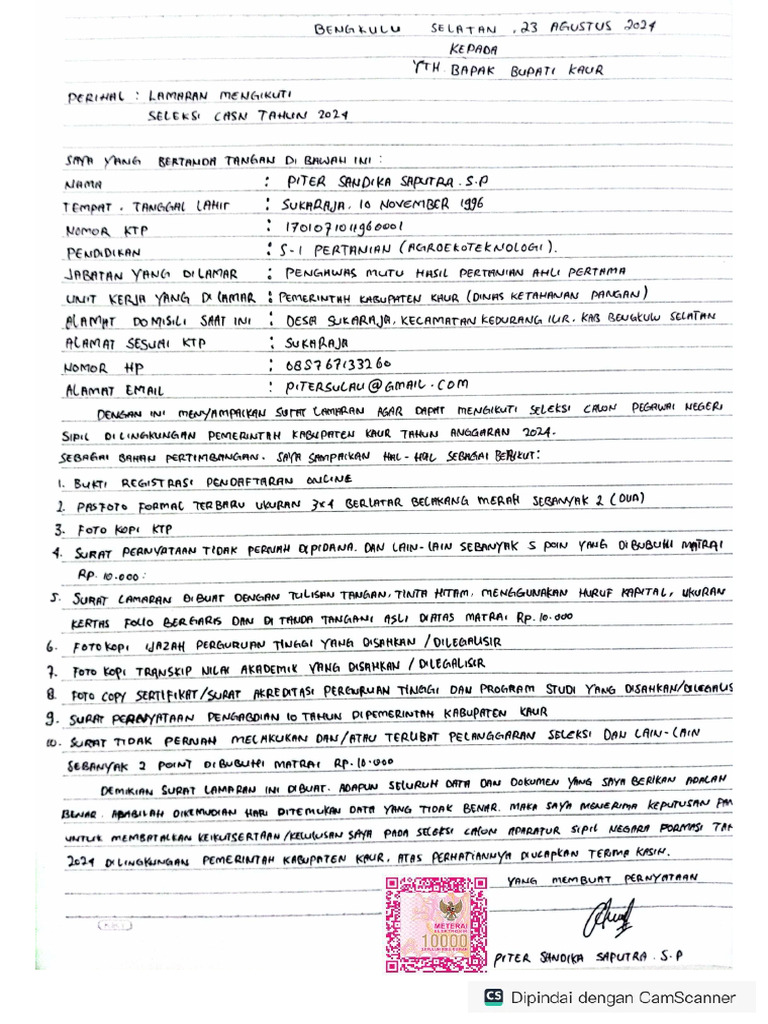 BENGKULU SELATAN, 23 AGUSTUS 2024
KEPADA
YTH. BAPAK BUPATI KAUR
PERIHAL : LAMARAN MENGIKUTI
SELEKSI CASN TAHUN 2024
SAYA YANG BERTANDA TANGAN DI BAWAH INI :
NAMA : PITER SANDIKA SAPUTRA . S.P
TEMPAT . TANGGAL LAHIR : SUKARAJA, 10 NOVEMBER 1996
NOMOR KTP : 1701071011960001
PENDIDIKAN : S-1 PERTANIAN (AGROEKOTEKNOLOGI).
JABATAN YANG DI LAMAR : PENGAWAS MUTU HASIL PERTANIAN AHLI PERTAMA
UNIT KERJA YANG DI LAMAR : PEMERINTAH KABUPATEN KAUR (DINAS KETAHANAN PANGAN)
ALAMAT DOMISILI SAAT INI : DESA SUKARAJA, KECAMATAN KEDURANG ILIR. KAB BENGKULU SELATAN
ALAMAT SESUAI KTP : SUKARAJA
NOMOR HP : 085767133260
ALAMAT EMAIL : PITERSULAU@GMAIL.COM
DENGAN INI MENYAMPAIKAN SURAT LAMARAN AGAR DAPAT MENGIKUTI SELEKSI CALON PEGAWAI NEGERI
SIPIL DI LINGKUNGAN PEMERINTAH KABUPATEN KAUR TAHUN ANGGARAN 2024.
SEBAGAI BAHAN PERTIMBANGAN. SAYA SAMPAIKAN HAL-HAL SEBAGAI BERIKUT :
1. BUKTI REGISTRASI PENDAFTARAN ONLINE
2. PASFOTO FORMAL TERBARU UKURAN 3x4 BERLATAR BELAKANG MERAH SEBANYAK 2 (DUA)
3. FOTO KOPI KTP
4. SURAT PERNYATAAN TIDAK PERNAH DIPIDANA. DAN LAIN-LAIN SEBANYAK 5 POIN YANG DIBUBUHI MATRAI
RP. 10.000 :
5. SURAT LAMARAN DIBUAT DENGAN TULISAN TANGAN, TINTA HITAM, MENGGUNAKAN HURUF KAPITAL, UKURAN
KERTAS FOLIO BERGARIS DAN DI TANDA TANGANI ASLI DIATAS MATRAI Rp. 10.000
6. FOTO KOPI IJAZAH PERGURUAN TINGGI YANG DISAHKAN / DILEGALISIR
7. FOTO KOPI TRANSKIP NILAI AKADEMIK YANG DISAHKAN / DILEGALISIR
8. FOTO COPY SERTIFIKAT/SURAT AKREDITASI PERGURUAN TINGGI DAN PROGRAM STUDI YANG DISAHKAN/DILEGALIS
9. SURAT PERNYATAAN PENGABDIAN 10 TAHUN DI PEMERINTAH KABUPATEN KAUR
10. SURAT TIDAK PERNAH MELAKUKAN DAN/ATAU TERLIBAT PELANGGARAN SELEKSI DAN LAIN-LAIN
SEBANYAK 2 POINT DIBUBUHI MATRAI RP. 10.000
DEMIKIAN SURAT LAMARAN INI DIBUAT. ADAPUN SELURUH DATA DAN DOKUMEN YANG SAYA BERIKAN ADALAH
BENAR. APABILAH DIKEMUDIAN HARI DITEMUKAN DATA YANG TIDAK BENAR. MAKA SAYA MENERIMA KEPUTUSAN
UNTUK MEMBATALKAN KEIKUTSERTAAN/KELULUSAN SAYA PADA SELEKSI CALON APARATUR SIPIL NEGARA FORMASI
2024 DI LINGKUNGAN PEMERINTAH KABUPATEN KAUR, ATAS PERHATIANNYA DIUCAPKAN TERIMA KASIH.
YANG MEMBUAT PERNYATAAN
METERAI
ELEKTRONIK
10000
PITER SANDIKA SAPUTRA . S.P
CS Dipindai dengan CamScanner